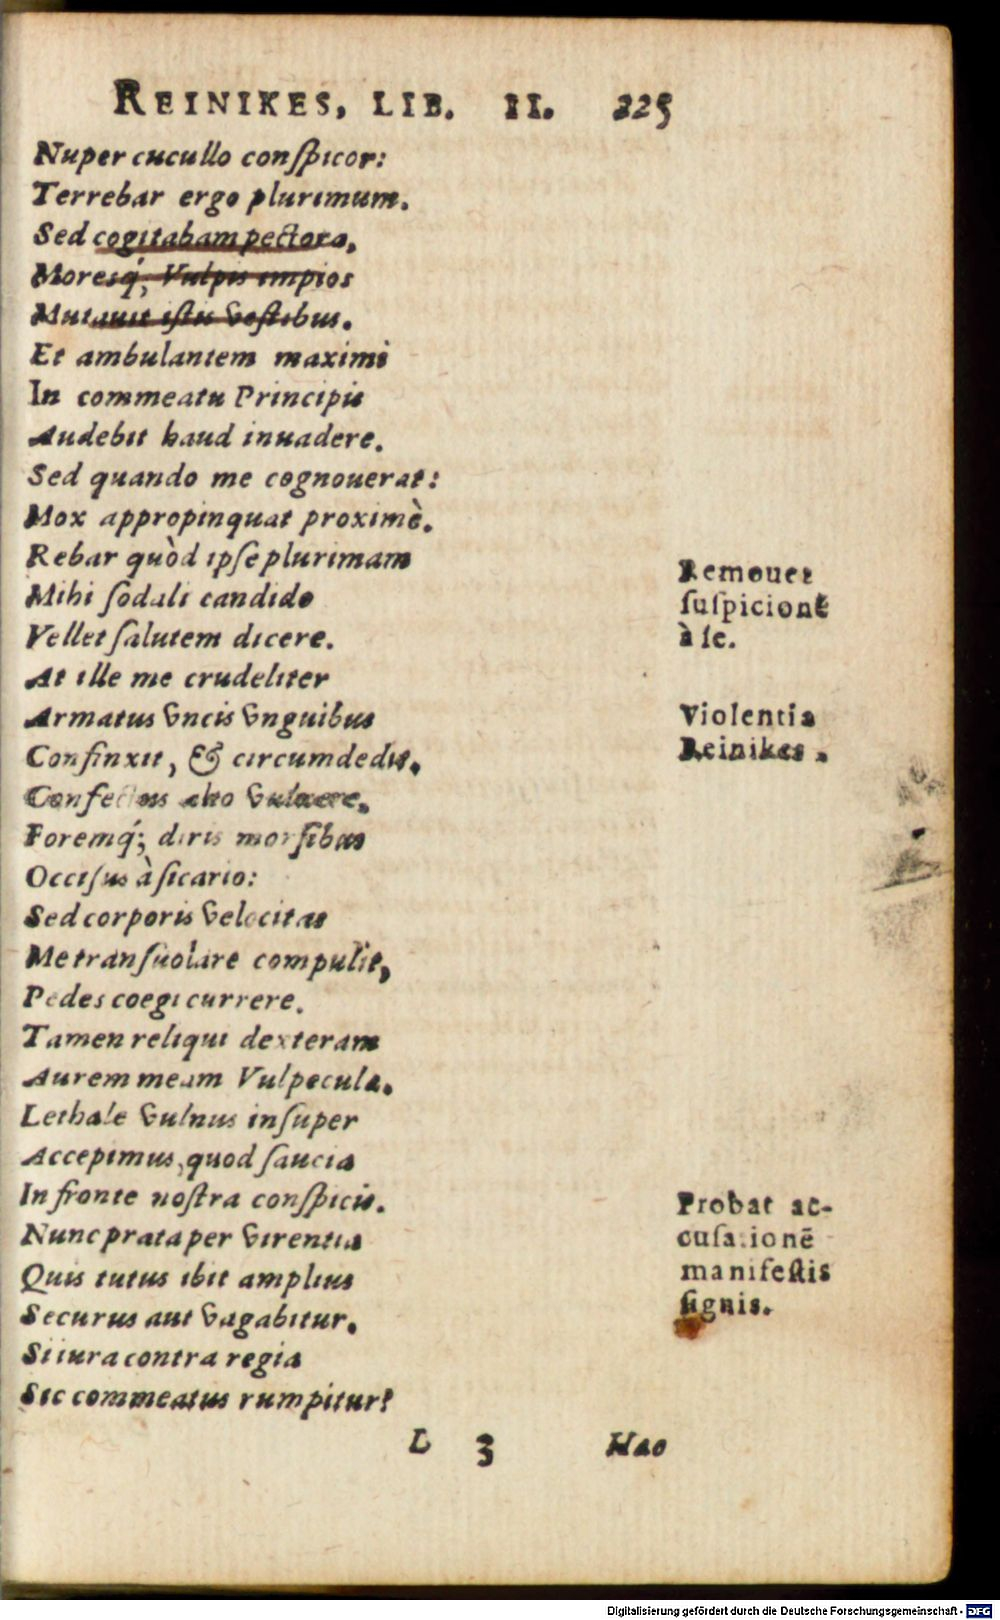 REINIKES, LIB. II. 225
Nuper cucullo conſpicor:
Terrebar ergo plurimum.
Sed cogitabam pectora,
Moresq́; Vulpis impios
Mutauit iſtis veſtibus.
Et ambulantem maximi
In commeatu Principis
Audebit haud inuadere.
Sed quando me cognouerat:
Mox appropinquat proximè.
Rebar quòd ipſe plurimam
Mihi ſodali candido
Vellet ſalutem dicere.
At ille me crudeliter
Armatus vncis vnguibus
Confinxit, & circumdedit.
Confectus alto vulnere,
Foremq́; diris morſibus
Occiſus à ſicario:
Sed corporis velocitas
Me tranſuolare compulit,
Pedes coegi currere.
Tamen reliqui dexteram
Aurem meam Vulpecula.
Lethale vulnus inſuper
Accepimus, quod ſaucia
In fronte noſtra conſpicis.
Nunc prata per virentia
Quis tutus ibit amplius
Securus aut vagabitur.
Si iura contra regia
Sic commeatus rumpitur?
Remouet
ſuſpicionẽ
à ſe.
Violentia
Reinikes.
Probat ac-
cuſationē
manifeſtis
ſignis.
L 3 Hao
Digitalisierung gefördert durch die Deutsche Forschungsgemeinschaft - DFG